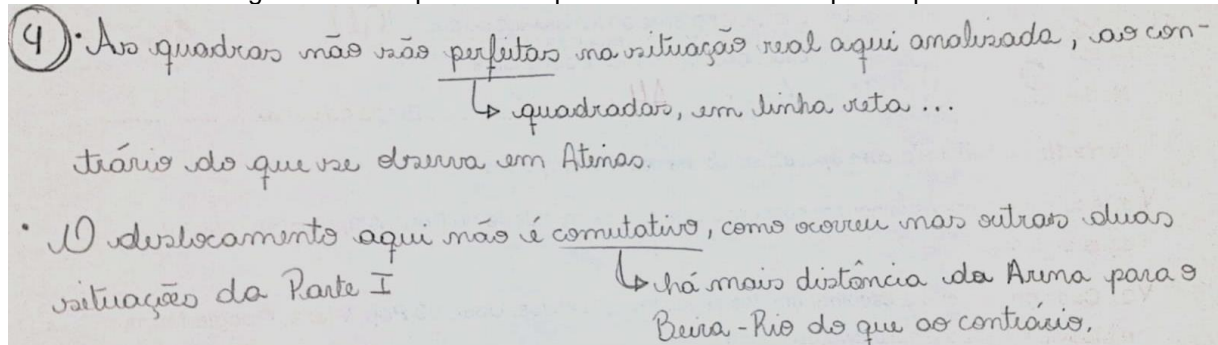 4) • As quadras não são perfeitas na situação real aqui analisada, ao con-
↳ quadradas, em linha reta ...
trário do que se observa em Atenas.
• O deslocamento aqui não é comutativo, como ocorreu nas outras duas
situações da Parte I
↳ há mais distância da Arena para o
Beira-Rio do que ao contrário.